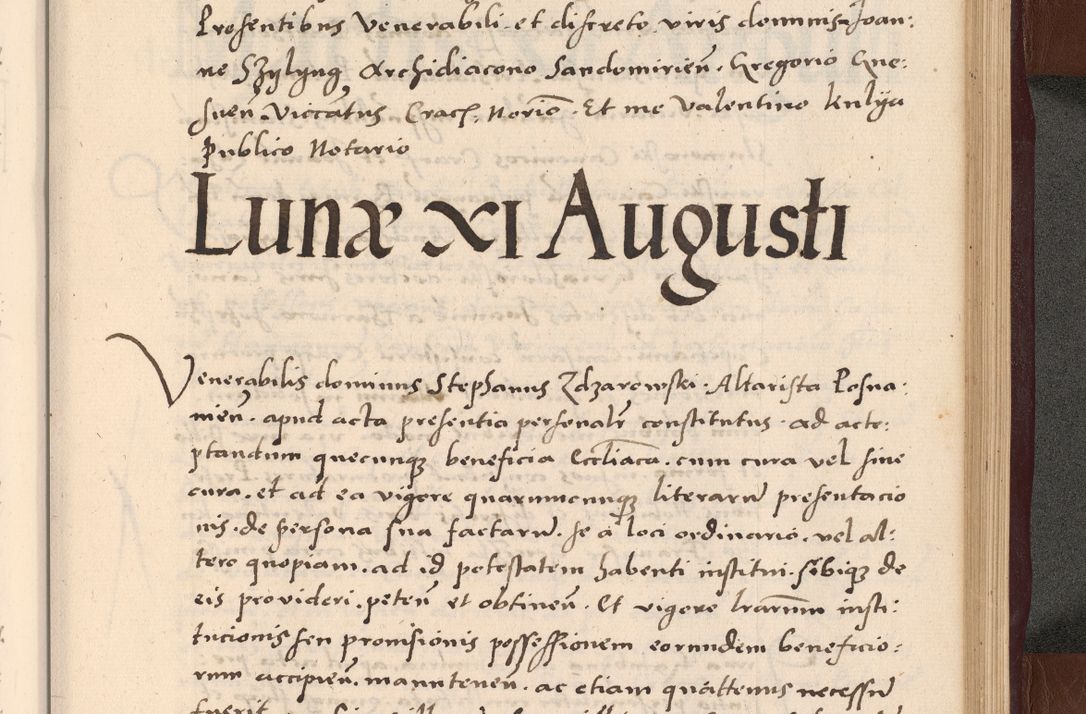 Presentibus Venerabili et discreto viris dominis Joan:
ne Szylyng Archidiacono Sandomirien̄. Gregorio Gne:
snen̄. Viccatus Crac. Norio. Et me Valentino Kulya
publico Notario
Lunæ XI Augusti
Venerabilis dominus Stephanus Zdzarowski. Altarista Posna:
nien̄. apud acta presentia personalr constitutus. ad acce:
ptandum quecunq; beneficia Eccliaca. cum cura vel sine
cura. et ad ea vigore quarumcunq; literarū presentacio
nis. de persona sua factarū. se a loci ordinario. vel al:
tero quopiam. ad id potestatem habenti institui. sibiq; de
eis provideri. peten̄ et obtinen̄. Et vigore lrarum insti:
tucionis seu provisionis possessionem eorundem beneficio:
rum accipien̄. manuteneñ. ac etiam quattenus necessū
fuerit